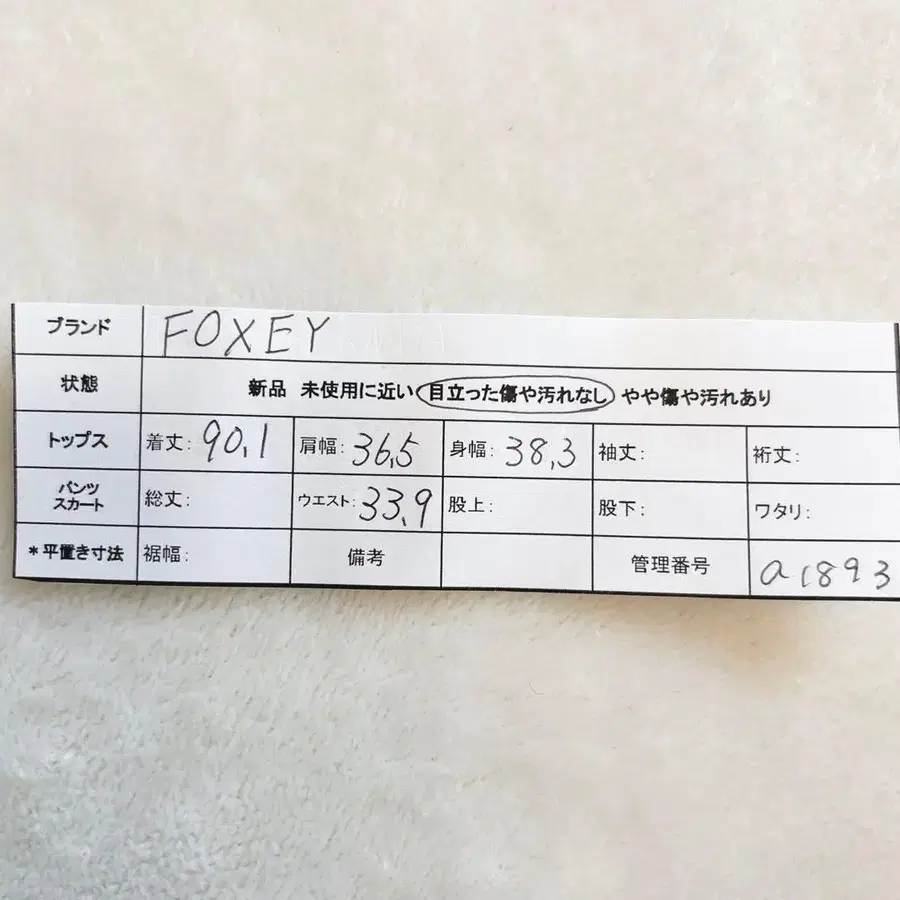 ブランド FOXEY
状態 新品 未使用に近い 目立った傷や汚れなし やや傷や汚れあり
トップス 着丈: 90.1 肩幅: 36.5 身幅: 38.3 袖丈: 裄丈:
パンツ スカート 総丈: ウエスト: 33.9 股上: 股下: ワタリ:
*平置き寸法 裾幅: 備考 管理番号 a1893